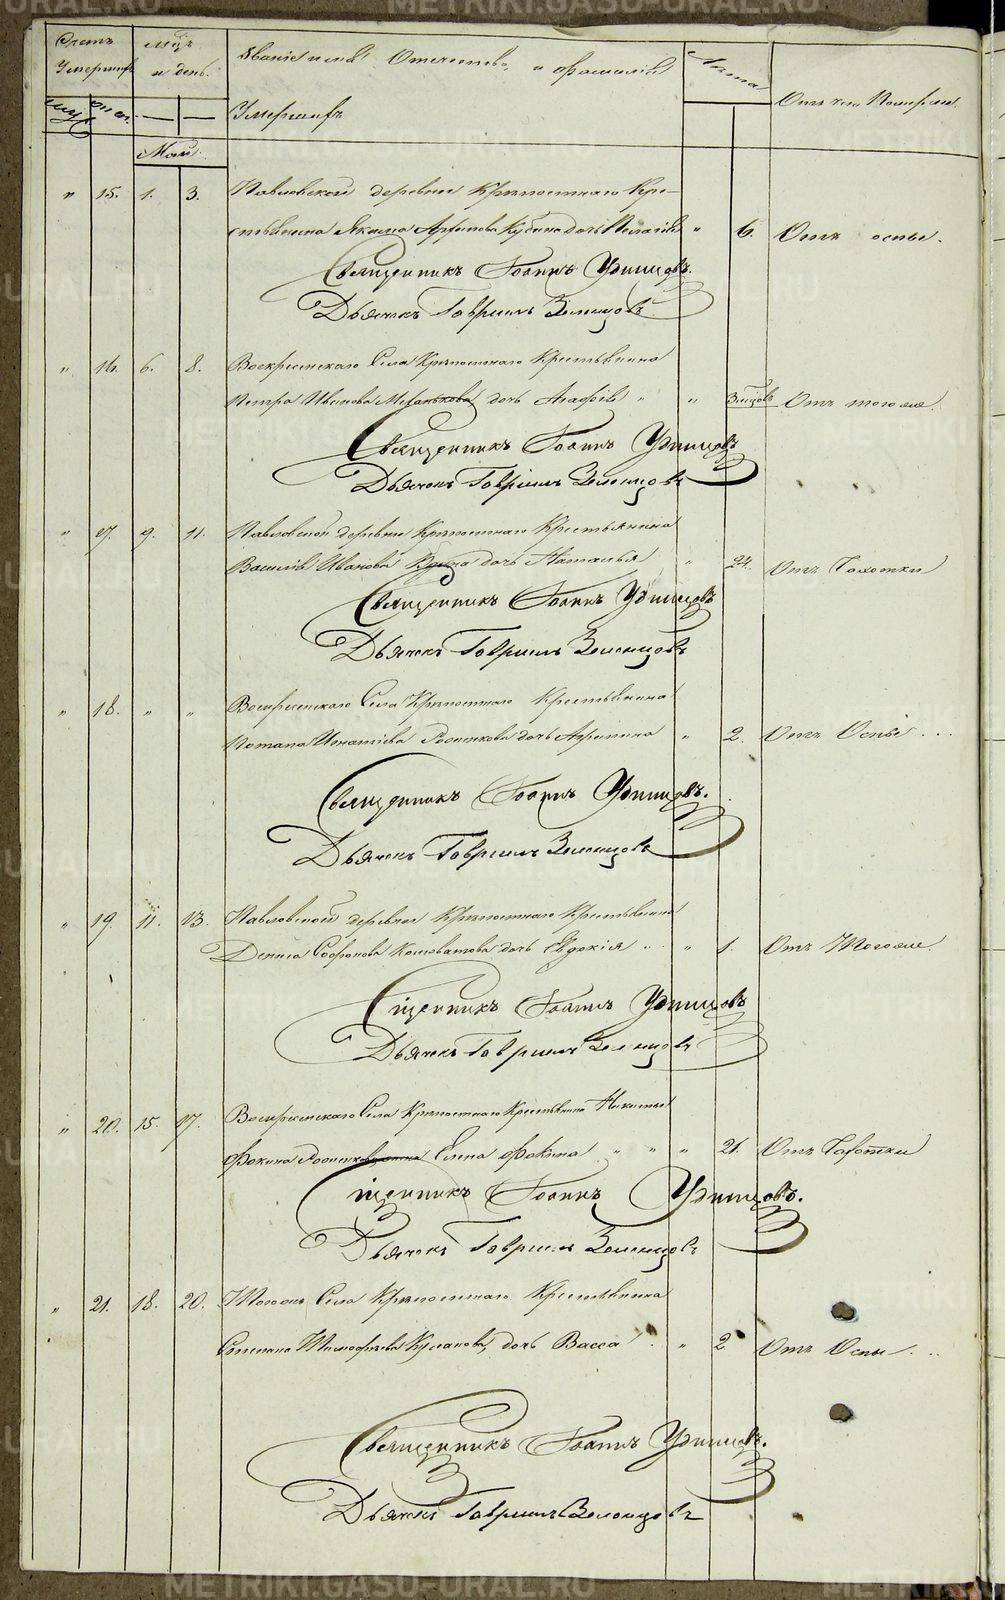 METRIKI.GASO-URAL.RU
Счетъ Умершихъ
Мцъ и день.
Званіе имя Отечество, и фамилія Умершихъ
Лѣта
Отъ чего Померли.
Май.
" 15. 1. 3. Павловской деревни Крѣпостнаго Кре-
стьянина Якима дочь Пелагія " 6. Отъ оспы.
Священникъ Іоаннъ Удинцовъ.
Дьячекъ Гавріилъ Зеленцовъ
" 16. 6. 8. Воскресенскаго Села Крѣпостнаго Крестьянина
Петра Иванова дочь Агафія " " Отъ тогоже.
Священникъ Іоаннъ Удинцовъ
Дьячекъ Гавріилъ Зеленцовъ
" 17. 9. 11. Павловской деревни Крѣпостнаго Крестьянина
Василія Иванова дочь Наталья " 24. Отъ Чахотки
Священникъ Іоаннъ Удинцовъ
Дьячекъ Гавріилъ Зеленцовъ
" 18. " " Воскресенскаго Села Крѣпостнаго Крестьянина
Потапа Игнатіева дочь " 2. Отъ Оспы
Священникъ Іоаннъ Удинцовъ.
Дьячекъ Гавріилъ Зеленцовъ
" 19. 11. 13. Павловской деревни Крѣпостнаго Крестьянина
Дениса Софронова дочь Евдокія " 1. Отъ Тогоже
Священникъ Іоаннъ Удинцовъ
Дьячекъ Гавріилъ Зеленцовъ
" 20. 15. 17. Воскресенскаго Села Крѣпостнаго Крестьянина Никиты
Фокина Елена Фокина " " " 21. Отъ Чахотки
Священникъ Іоаннъ Удинцовъ.
Дьячекъ Гавріилъ Зеленцовъ
" 21. 18. 20. Тогожъ Села Крѣпостнаго Крестьянина
Степана Тимофѣева дочь Васса " 2 Отъ Оспы
Священникъ Іоаннъ Удинцовъ.
Дьячекъ Гавріилъ Зеленцовъ
METRIKI.GASO-URAL.RU